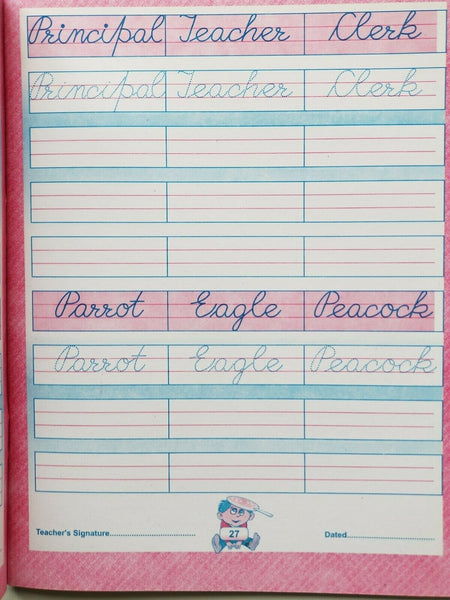 Principal Teacher Clerk
Principal Teacher Clerk
Parrot Eagle Peacock
Parrot Eagle Peacock
27
Teacher's Signature.............................. Dated..............................